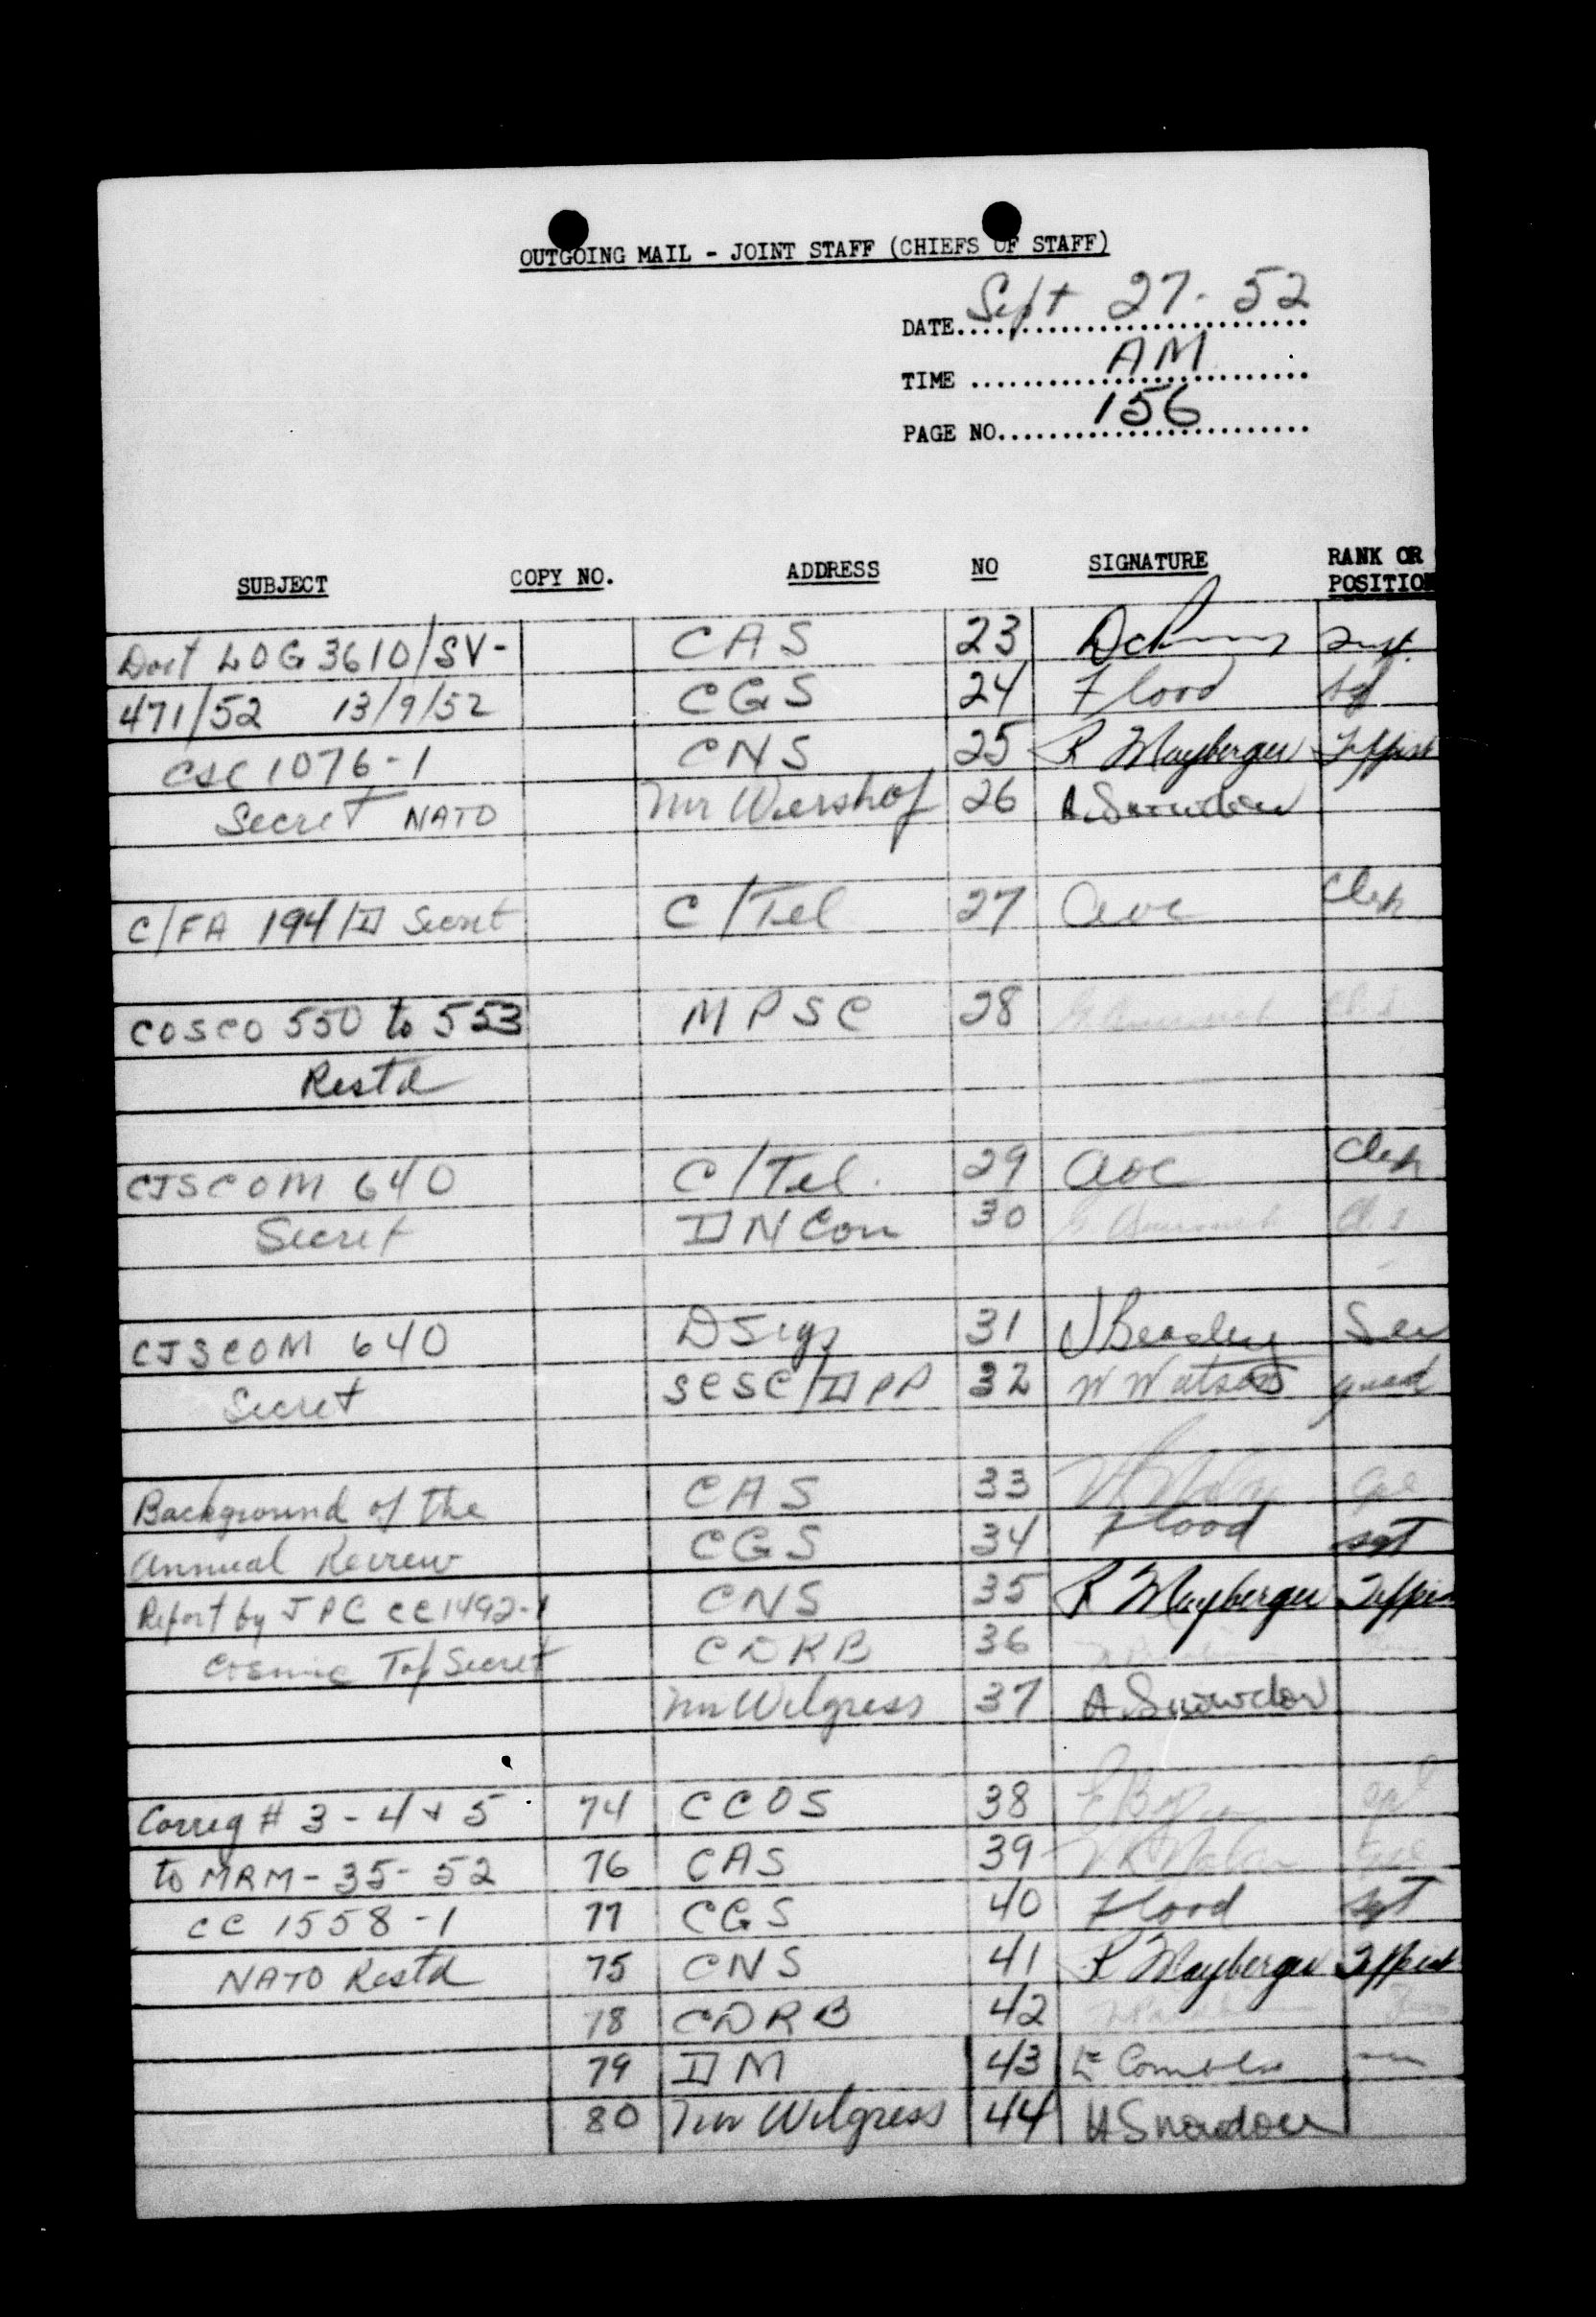 OUTGOING MAIL - JOINT STAFF (CHIEFS OF STAFF)
DATE Sept 27. 52
TIME AM
PAGE NO. 156
SUBJECT COPY NO. ADDRESS NO SIGNATURE RANK OR POSITION
LOG 3610/SV- CAS 23
471/52 13/9/52 CGS 24 Flood
CSC 1076-1 CNS 25 R Mayberger
Secret NATO Mr Wershof 26 A. Snowdon
C/FA 194/D Secret C/Tel 27 aoc Clerk
COSCO 550 to 553 MPSC 28
Restd
CJSCOM 640 C/Tel. 29 aoc Clerk
Secret DN Com 30
CJSCOM 640 D Sigs 31 J Beasley Sec
Secret SCSC/DPP 32 W Watson guard
Background of the CAS 33 Cpl
Annual Review CGS 34 Flood sgt
Report by JPC CC1492-1 CNS 35 R Mayberger
Cosmic Top Secret CDRB 36
Mr Wilgress 37 A. Snowdon
Corrig # 3 - 4 + 5 74 CCOS 38 Cpl
to MRM - 35 - 52 76 CAS 39
CC 1558 - 1 77 CGS 40 Flood sgt
NATO Restd 75 CNS 41 R Mayberger
78 CDRB 42
79 DM 43
80 Mr Wilgress 44 A Snowdon